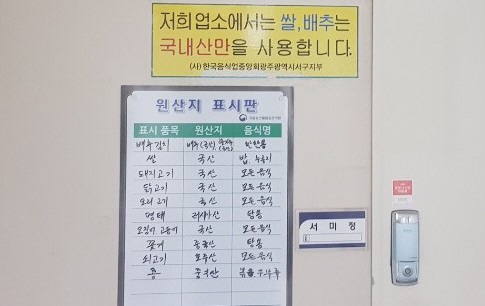 저희업소에서는 쌀,배추는
국내산만을 사용합니다.
(사) 한국음식업중앙회광주광역시서구지부
원산지 표시판
표시 품목 원산지 음식명
배추김치 배추(국산)
쌀 국산 밥, 누룽지
돼지고기 국산 모든음식
닭고기 국산 모든음식
오리고기 국산 모든음식
명태 러시아산 탕용
오징어 고등어 국산 모든음식
꽃게 중국산 탕용
쇠고기 호주산 모든음식
콩
서미정